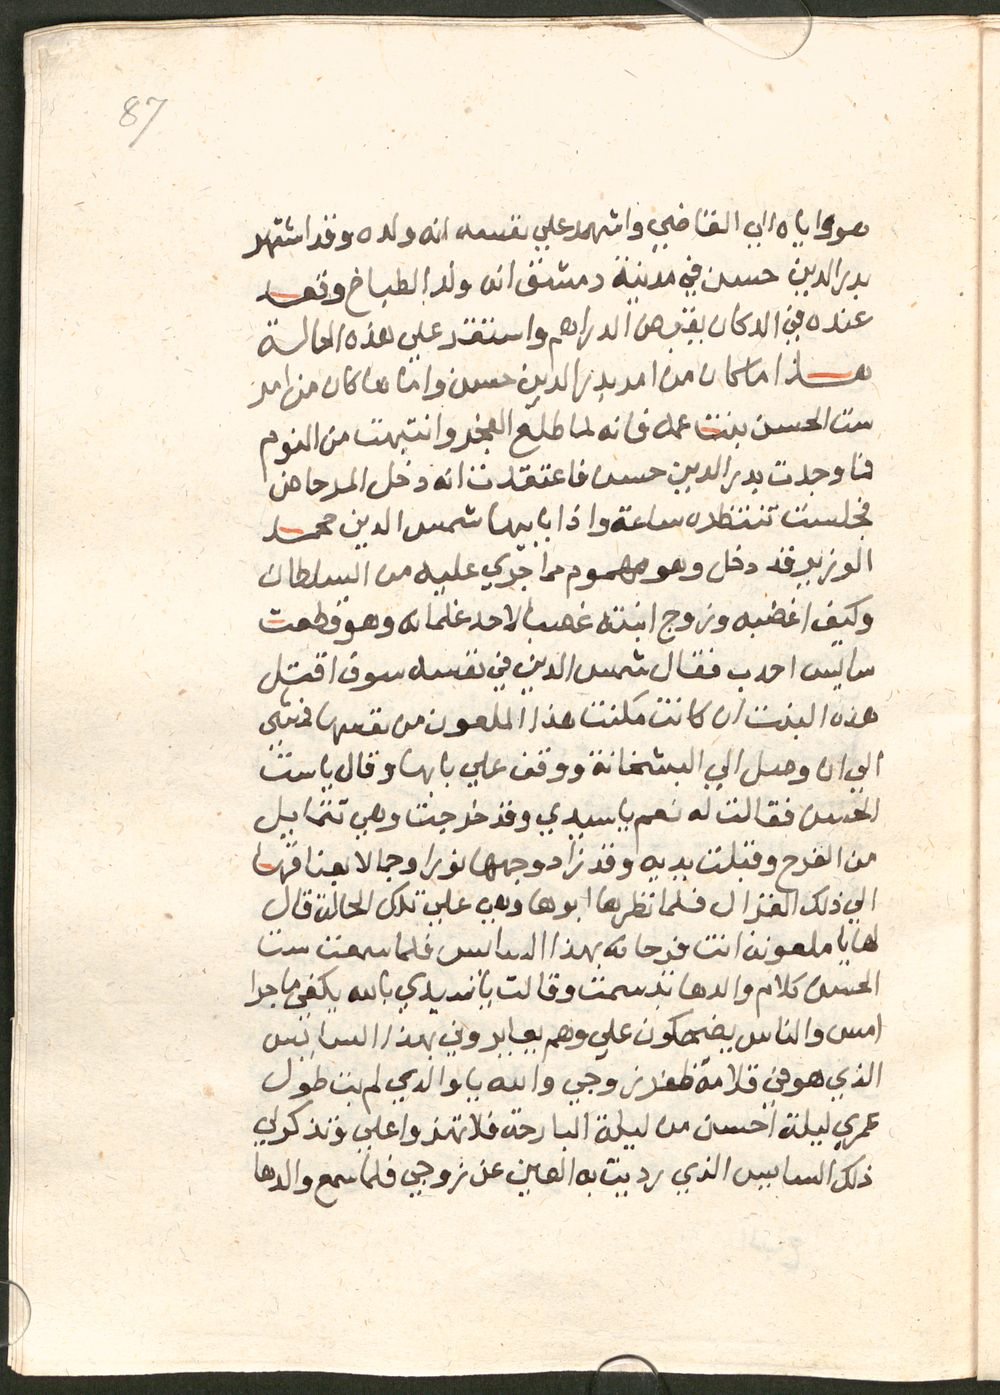 87
هو واياه الي القاضي واشهد علي نفسه انه ولده وقد اشتهر
بدر الدين حسن في مدينة دمشق انه ولد الطباخ وقعد
عنده في الدكان يقبض الدراهم واستقر علي هذه الحالة
هذا ما كان من امر بدر الدين حسن واما ما كان من امر
ست الحسن بنت عمه فانه لما طلع الفجر وانتبهت من النوم
فما وجدت بدر الدين حسن فاعتقدت انه دخل المرحاض
فجلست تنتظره ساعة واذا بابيها شمس الدين محمد
الوزير قد دخل وهو مهموم مما جري عليه من السلطان
وكيف اغضبه وزوج ابنته غصبا لاحد غلمانه وهو قطعت
سايس احدب فقال شمس الدين في نفسه سوف اقتل
هذه البنت ان كانت مكنت هذا الملعون من نفسها فمشي
الي ان وصل الي البشخانة ووقف علي بابها وقال يا ست
الحسن فقالت له نعم يا سيدي وقد خرجت وهي تتمايل
من الفرح وقبلت يديه وقد زاد وجهها نورا وجمالا بعناقها
الي ذلك الغزال فلما نظرها ابوها وهي علي تلك الحالة قال
لها يا ملعونة انت فرحانه بهذا السايس فلما سمعت ست
الحسن كلام والدها تبسمت وقالت يا سيدي بالله يكفي ما جرا
امس والناس يضحكون علي وهم يعايروني بهذا السايس
الذي هو في قلامة ظفر زوجي والله يا والدي لم بت طول
عمري ليلة احسن من ليلة البارحة فلا تهزوا علي وتذكر لي
ذلك السايس الذي رديت به العين عن زوجي فلما سمع والدها